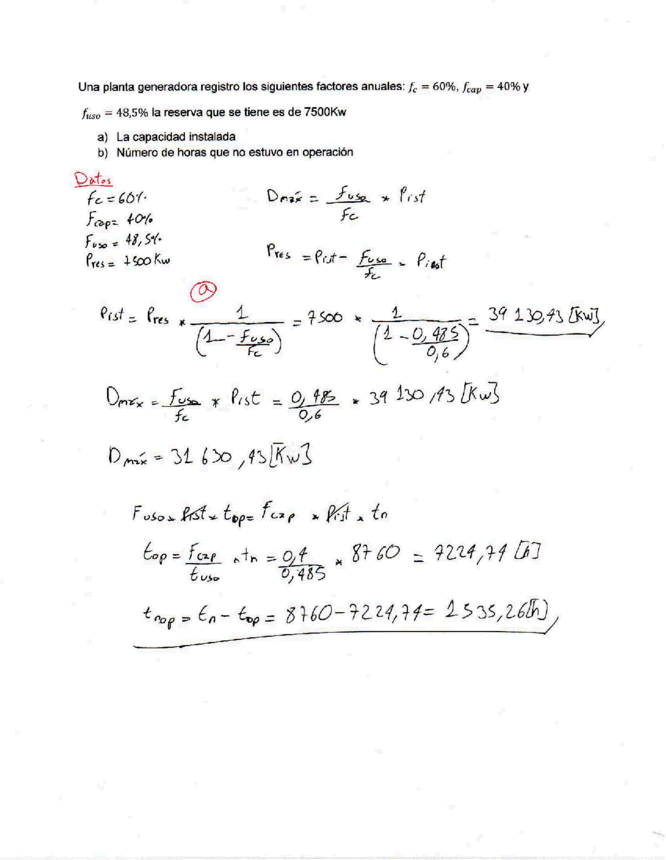 Una planta generadora registro los siguientes factores anuales: f_c = 60%, f_cap = 40% y
f_uso = 48,5% la reserva que se tiene es de 7500Kw
a) La capacidad instalada
b) Número de horas que no estuvo en operación
Datos
fc = 60%
Fcap = 40%
Fuso = 48,5%
Pres = 7500 Kw
Dmáx = fuso / fc * Pist
Pres = Pist - fuso / fc - Pinst
a
Pist = Pres * 1 / (1 - fuso / fc) = 7500 * 1 / (1 - 0,485 / 0,6) = 39 130,43 [Kw]
Dmáx = fuso / fc * Pist = 0,485 / 0,6 * 39 130,43 [Kw]
Dmáx = 31 630,43 [Kw]
Fuso * Pist * top = fcap * Pist * tn
top = fcap / tuso * tn = 0,4 / 0,485 * 8760 = 7224,74 [h]
tnop = tn - top = 8760 - 7224,74 = 1535,26 [h]